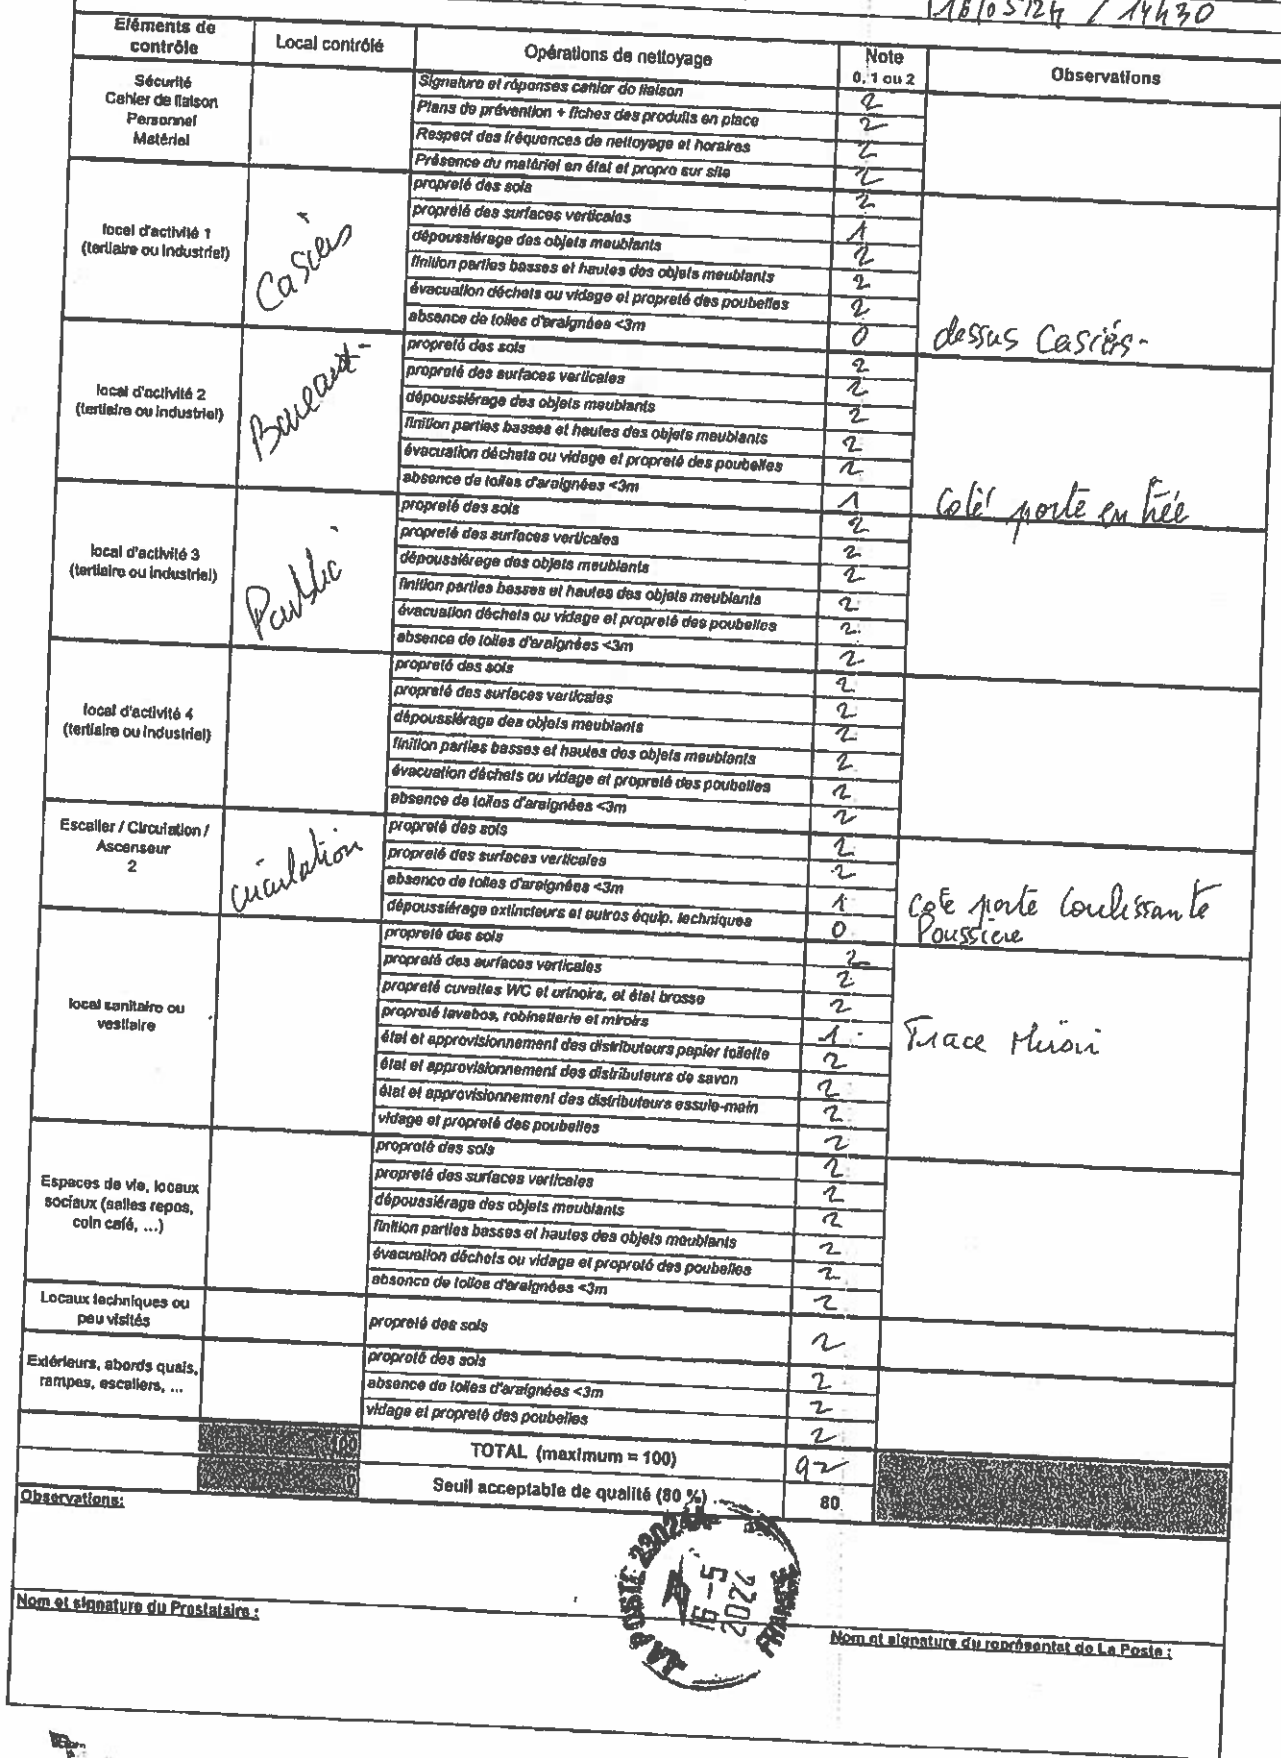 16/05/24 / 14h30
Eléments de contrôle | Local contrôlé | Opérations de nettoyage | Note 0, 1 ou 2 | Observations
Sécurité
Cahier de liaison
Personnel
Matériel
Signature et réponses cahier de liaison 2
Plans de prévention + fiches des produits en place 2
Respect des fréquences de nettoyage et horaires 2
Présence du matériel en état et propre sur site 2
local d'activité 1
(tertiaire ou industriel)
Casiers
propreté des sols 2
propreté des surfaces verticales 1
dépoussiérage des objets meublants 2
finition parties basses et hautes des objets meublants 2
évacuation déchets ou vidage et propreté des poubelles 2
absence de toiles d'araignées <3m 0 dessus Casiers-
local d'activité 2
(tertiaire ou industriel)
propreté des sols 2
propreté des surfaces verticales 2
dépoussiérage des objets meublants 2
finition parties basses et hautes des objets meublants 2
évacuation déchets ou vidage et propreté des poubelles 2
absence de toiles d'araignées <3m 1 Coté porte entrée
local d'activité 3
(tertiaire ou industriel)
Public
propreté des sols 2
propreté des surfaces verticales 2
dépoussiérage des objets meublants 2
finition parties basses et hautes des objets meublants 2
évacuation déchets ou vidage et propreté des poubelles 2
absence de toiles d'araignées <3m 2
local d'activité 4
(tertiaire ou industriel)
propreté des sols 2
propreté des surfaces verticales 2
dépoussiérage des objets meublants 2
finition parties basses et hautes des objets meublants 2
évacuation déchets ou vidage et propreté des poubelles 2
absence de toiles d'araignées <3m 2
Escalier / Circulation /
Ascenseur
2
circulation
propreté des sols 2
propreté des surfaces verticales 2
absence de toiles d'araignées <3m 1 Coté porte Coulissante
dépoussiérage extincteurs et autres équip. techniques 0 Poussiere
local sanitaire ou
vestiaire
propreté des sols 2
propreté des surfaces verticales 2
propreté cuvettes WC et urinoirs, et état brosse 2
propreté lavabos, robinetterie et miroirs 1 Trace Miroir
état et approvisionnement des distributeurs papier toilette 2
état et approvisionnement des distributeurs de savon 2
état et approvisionnement des distributeurs essuie-main 2
vidage et propreté des poubelles 2
Espaces de vie, locaux
sociaux (salles repos,
coin café, ...)
propreté des sols 2
propreté des surfaces verticales 2
dépoussiérage des objets meublants 2
finition parties basses et hautes des objets meublants 2
évacuation déchets ou vidage et propreté des poubelles 2
absence de toiles d'araignées <3m 2
Locaux techniques ou
peu visités
propreté des sols 2
Extérieurs, abords quais,
rampes, escaliers, ...
propreté des sols 2
absence de toiles d'araignées <3m 2
vidage et propreté des poubelles 2
100 TOTAL (maximum = 100) 92
0 Seuil acceptable de qualité (80 %) 80
Observations:
LA POSTE 23024A
16 -5
2022
FRANCE
Nom et signature du Prestataire :
Nom et signature du représentat de La Poste :